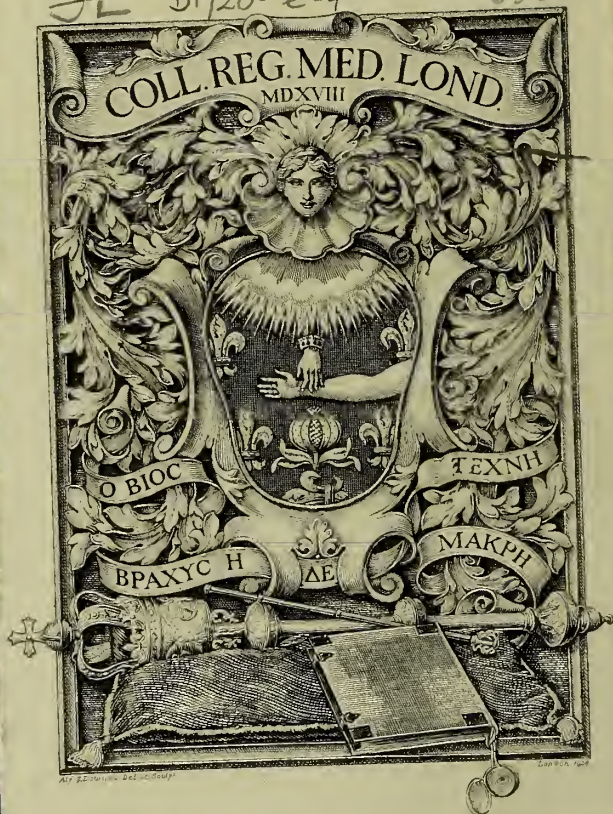 COLL. REG. MED. LOND.
MDXVIII
Ο ΒΙΟC
ΒΡΑΧΥC Η
ΔΕ
ΤΕΧΝΗ
ΜΑΚΡΗ
London